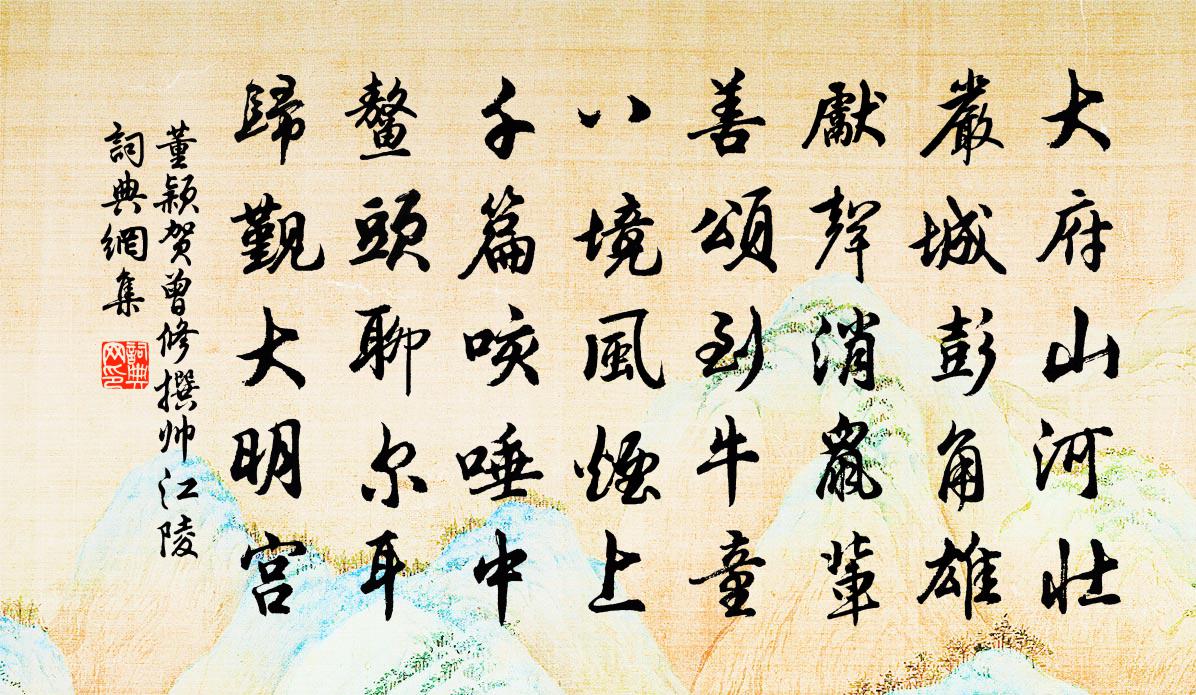 大府山河壮
嚴城彭角雄
獻聲消鼠輩
善頌到牛童
八境風煙上
千篇咳唾中
鰲頭聊尔耳
歸覲大明宫
董颖贺曾修撰帅江陵
詞典網集
詞典網印